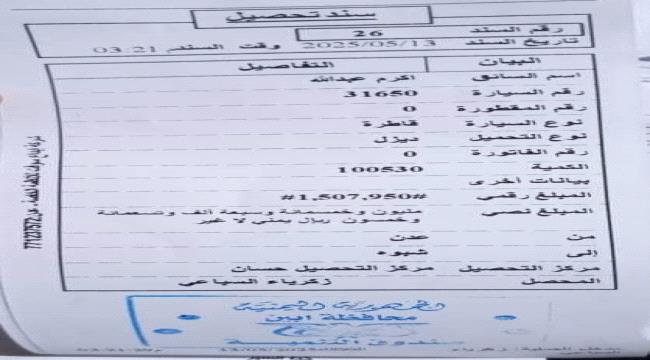 سند تحصيل
رقم السند 26
تاريخ السند 2025/05/13 وقت السند 03:21
البيان التفاصيل
اسم السائق اكرم عبدالله
رقم السيارة 31650
رقم المقطورة 0
نوع السيارة قاطرة
نوع التحميل ديزل
رقم الفاتورة 0
الكمية 100530
بيانات أخرى
المبلغ رقمي #1,507,950#
المبلغ نصي مليون وخمسمائة وسبعة ألف وتسعمائة
وخمسون ريال يمني لا غير
من عدن
إلى شبوه
مركز التحصيل مركز التحصيل حسان
المحصل زكرياء السباعي
الجمهورية اليمنية
محافظة ابين
صندوق التنمية